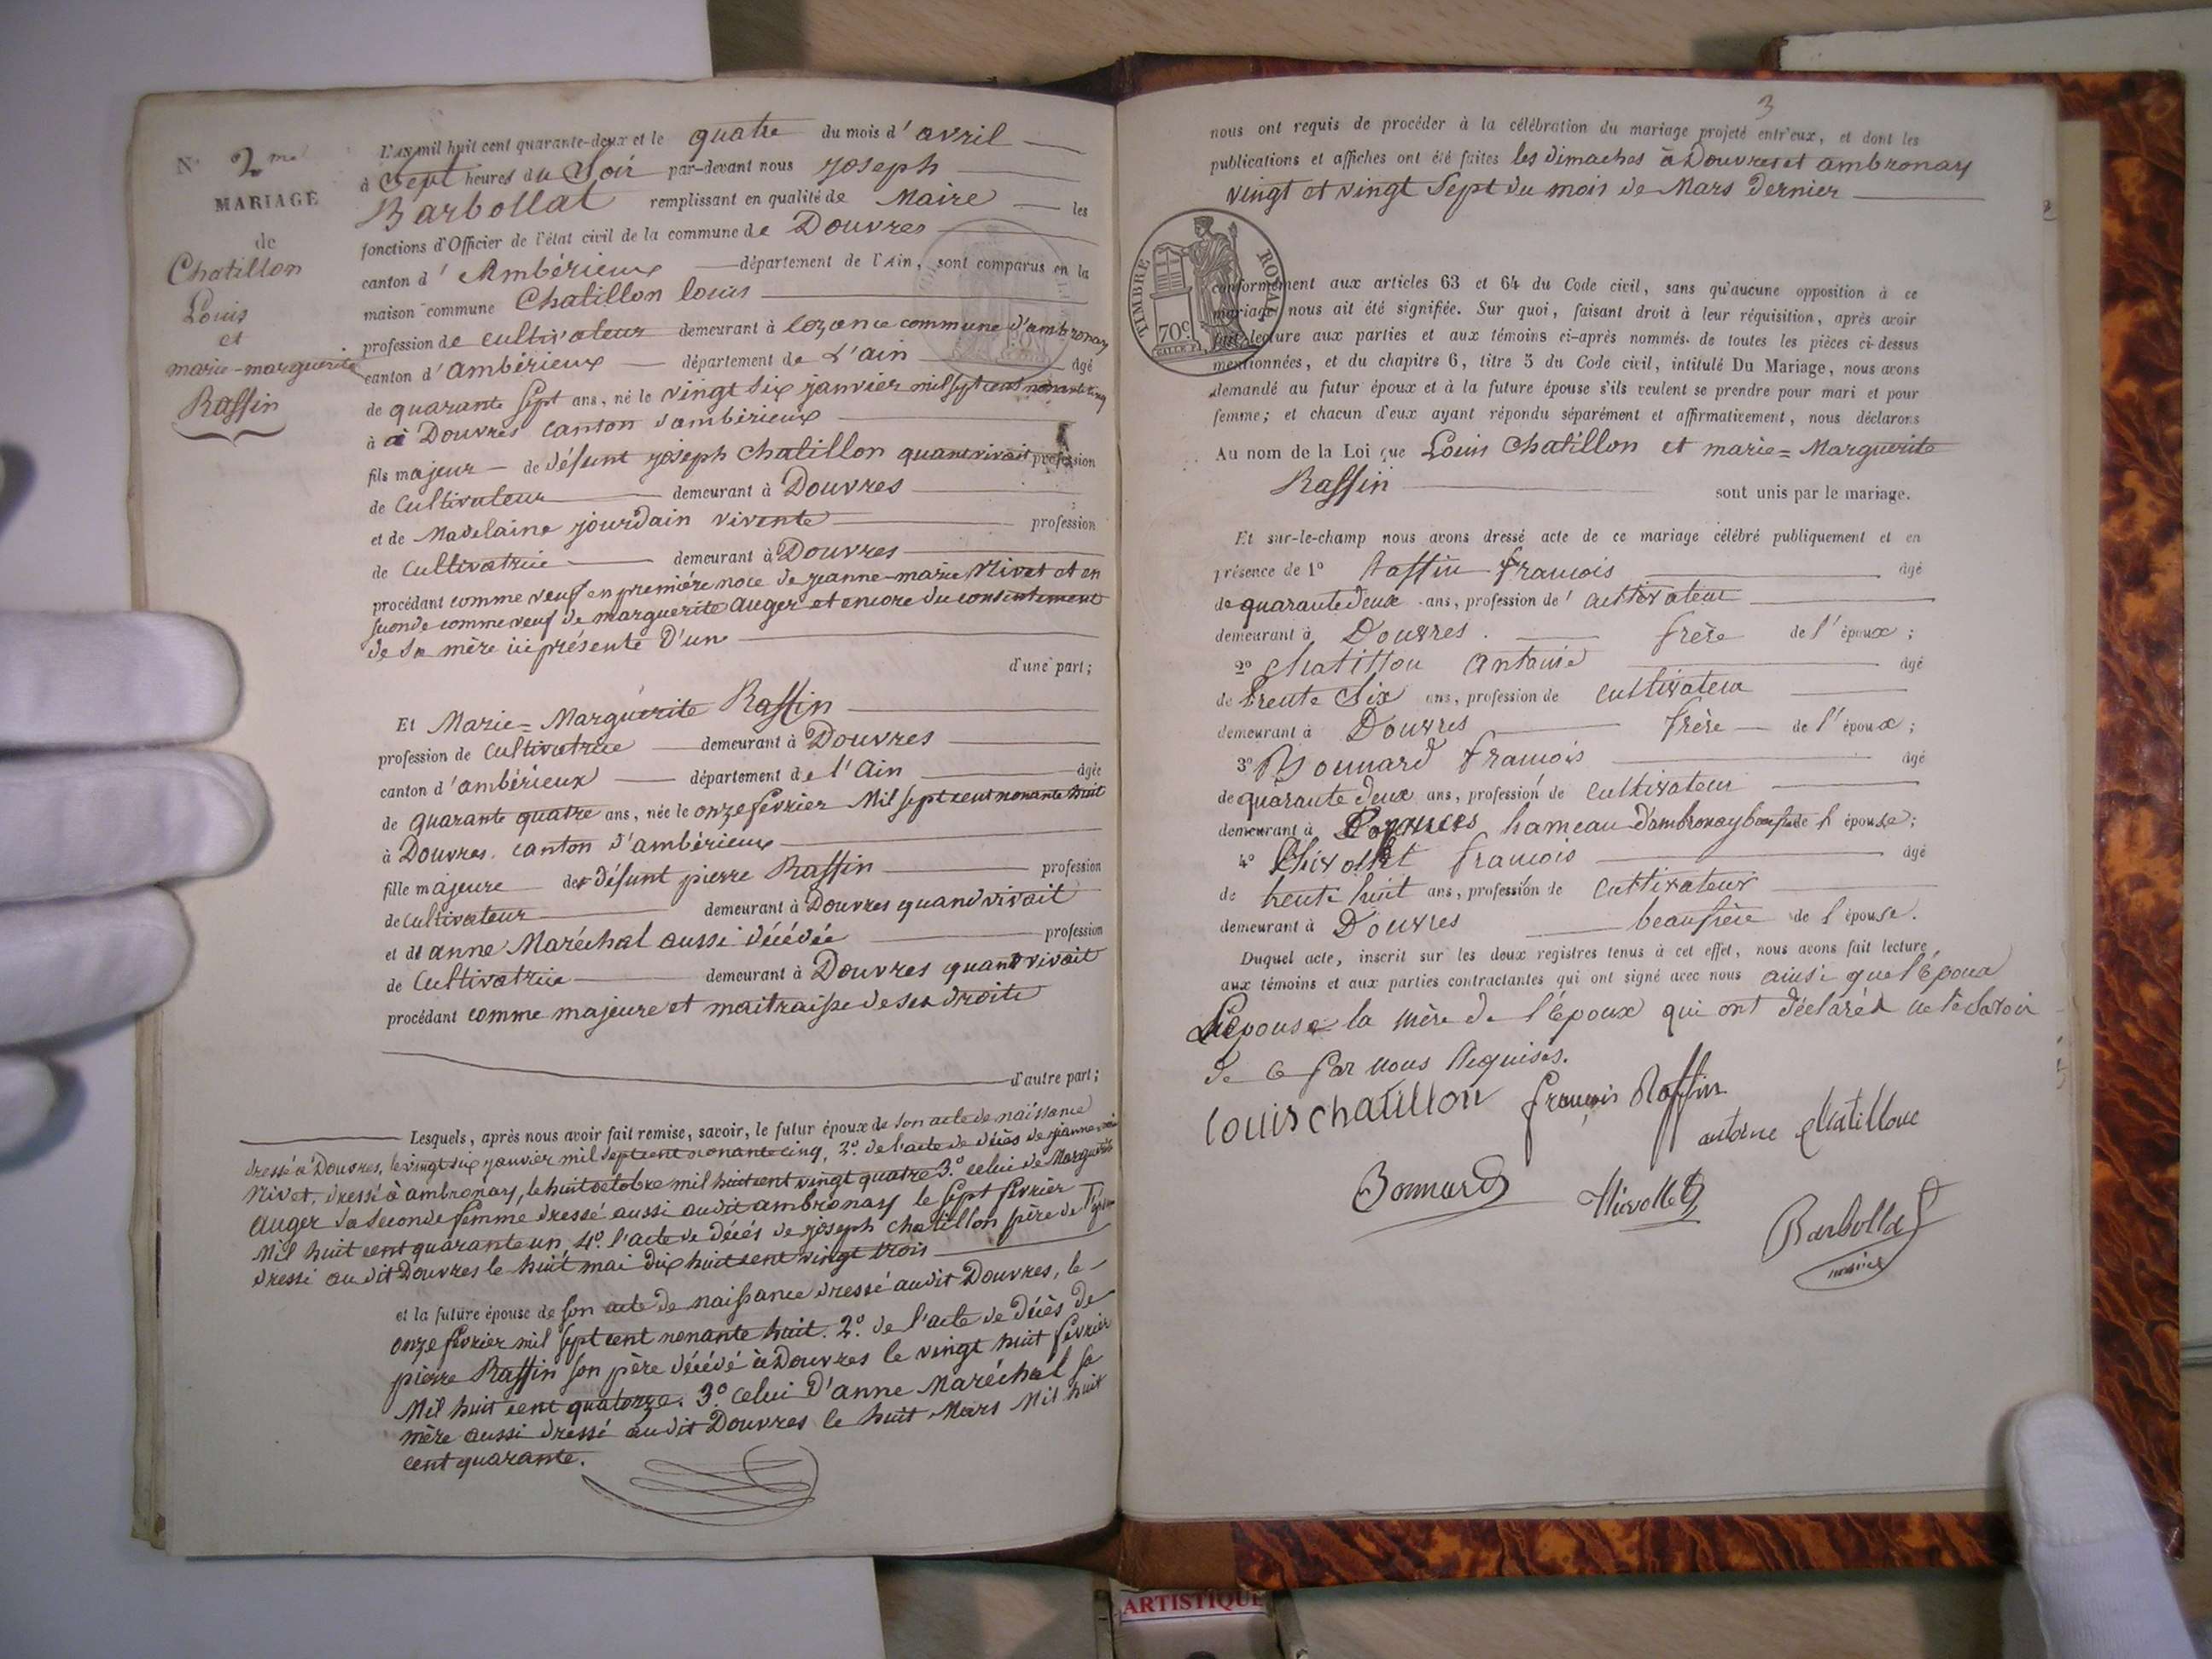 N° 2me
MARIAGE
de
Chatillon
Louis
et
marie-marguerite
Raffin
L'AN mil huit cent quarante-deux et le quatre du mois d'avril
à Sept heures du Soir par-devant nous joseph
Barbollat remplissant en qualité de Maire les
fonctions d'Officier de l'état civil de la commune de Douvres
canton d'Ambérieux département de l'Ain, sont comparus en la
maison commune Chatillon louis
profession de cultivateur demeurant à cozance commune d'ambronay
canton d'ambérieux département de L'ain âgé
de quarante Sept ans, né le vingt six janvier mil sept cent nonante cinq
à à Douvres canton d'ambérieux
fils majeur de défunt joseph chatillon quant vivait profession
de Cultivateur demeurant à Douvres
et de Madelaine jourdain vivente profession
de Cultivatrice demeurant à Douvres
procédant comme veuf en première noce de jeanne-marie Nivet et en
seconde comme veuf de marguerite auger et encore du consentement
de Sa mère ici présente D'une
d'une part;
Et Marie=Marguerite Raffin
profession de Cultivatrice demeurant à Douvres
canton d'ambérieux département de l'Ain âgée
de quarante quatre ans, née le onze fevrier Mil sept cent nonante huit
à Douvres. canton d'ambérieux
fille majeure de défunt pierre Raffin profession
de Cultivateur demeurant à Douvres quand vivait
et de anne Maréchal aussi décédée profession
de Cultivatrice demeurant à Douvres quant vivait
procédant comme majeure et maitraisse de ses droits
d'autre part;
Lesquels, après nous avoir fait remise, savoir, le futur époux de son acte de naissance
dressé à Douvres, le vingt six janvier mil sept cent nonante cinq, 2° de l'acte de décès de jeanne marie
Nivet, dressé à ambronay, le huit octobre mil huit cent vingt quatre 3° celui de Marguerite
auger sa seconde femme dressé aussi audit ambronay le Sept fevrier
Mil huit cent quarante un, 4° l'acte de décès de joseph chatillon père de l'époux
dressé audit Douvres le huit mai dix huit cent vingt trois
et la future épouse de son acte de naissance dressé audit Douvres, le
onze fevrier mil sept cent nonante huit. 2° de l'acte de décès de
pierre Raffin son père décédé à Douvres le vingt huit fevrier
Mil huit cent quatorze. 3° celui d'anne Maréchal sa
mère aussi dressé audit Douvres le huit Mars Mil huit
cent quarante.
3
nous ont requis de procéder à la célébration du mariage projeté entr'eux, et dont les
publications et affiches ont été faites les dimaches à Douvres et ambronay
vingt et vingt Sept du mois de Mars dernier
TIMBRE ROYAL
70c
conformément aux articles 63 et 64 du Code civil, sans qu'aucune opposition à ce
mariage nous ait été signifiée. Sur quoi, faisant droit à leur réquisition, après avoir
fait lecture aux parties et aux témoins ci-après nommés de toutes les pièces ci-dessus
mentionnées, et du chapitre 6, titre 5 du Code civil, intitulé Du Mariage, nous avons
demandé au futur époux et à la future épouse s'ils veulent se prendre pour mari et pour
femme; et chacun d'eux ayant répondu séparément et affirmativement, nous déclarons
Au nom de la Loi que Louis Chatillon et marie=Marguerite
Raffin sont unis par le mariage.
Et sur-le-champ nous avons dressé acte de ce mariage célébré publiquement et en
présence de 1° Raffin francois âgé
de quarante deux ans, profession de cultivateur
demeurant à Douvres. frère de l'époux;
2° Chatillon Antoine âgé
de trente Six ans, profession de cultivateur
demeurant à Douvres frère de l'époux;
3° Bonnard francois âgé
de quarante deux ans, profession de cultivateur
demeurant à hameau d'ambronay de l'épouse;
4° francois âgé
de trente huit ans, profession de cultivateur
demeurant à Douvres beaufrère de l'épouse.
Duquel acte, inscrit sur les deux registres tenus à cet effet, nous avons fait lecture
aux témoins et aux parties contractantes qui ont signé avec nous ainsi que l'époux
L'épouse la mère de l'époux qui ont déclaré ne le Savoir
de ce par nous Requises.
Louis chatillon françois Raffin
antoine chatillon
Bonnard
Barbollat
maire
ARTISTIQUE